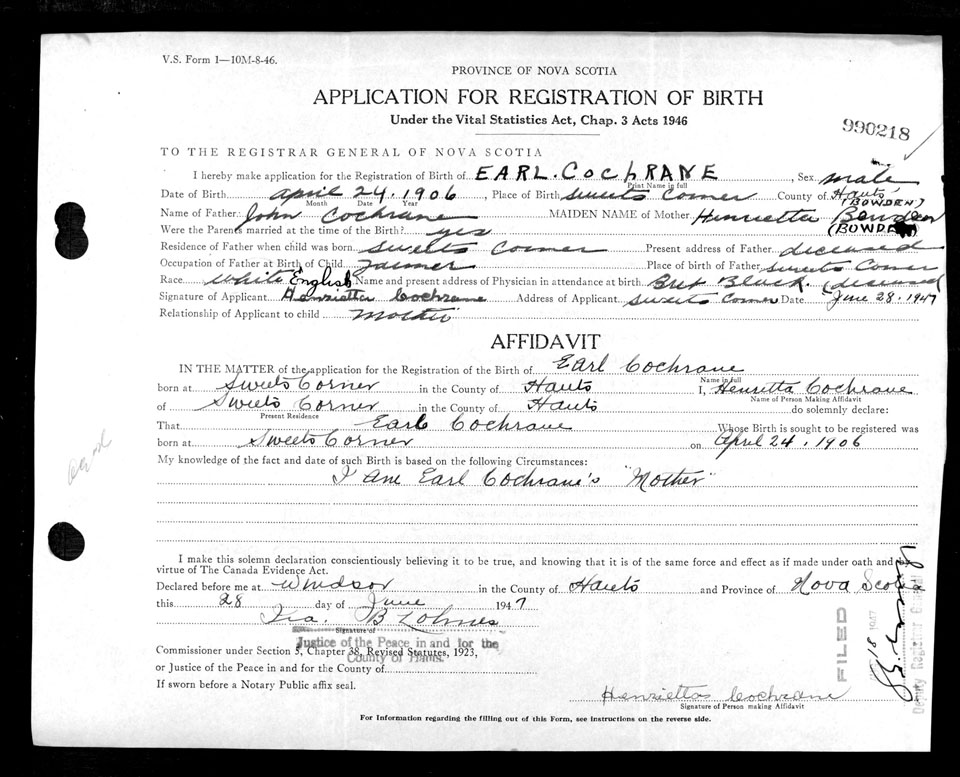 V.S. Form 1—10M-8-46.
PROVINCE OF NOVA SCOTIA
APPLICATION FOR REGISTRATION OF BIRTH
Under the Vital Statistics Act, Chap. 3 Acts 1946
990218
TO THE REGISTRAR GENERAL OF NOVA SCOTIA
I hereby make application for the Registration of Birth of EARL. COCHRANE, Sex male
Print Name in full
Date of Birth april 24. 1906, Place of Birth Sweets Corner County of Hants
Month Date Year
(BOWDEN)
Name of Father John Cochrane MAIDEN NAME of Mother Henrietta Bowden
Were the Parents married at the time of the Birth? yes (BOWDEN)
Residence of Father when child was born Sweets Corner Present address of Father deceased
Occupation of Father at Birth of Child Farmer Place of birth of Father Sweets Corner
Race White English Name and present address of Physician in attendance at birth Black. (deceased
Signature of Applicant Henrietta Cochrane Address of Applicant Sweets Corner Date June 28. 1947
Relationship of Applicant to child Mother
AFFIDAVIT
IN THE MATTER of the application for the Registration of the Birth of Earl Cochrane
Name in full
born at Sweets Corner in the County of Hants I, Henrietta Cochrane
Name of Person Making Affidavit
of Sweets Corner in the County of Hants do solemnly declare:
Present Residence
That Earl Cochrane Whose Birth is sought to be registered was
born at Sweets Corner on April 24. 1906
My knowledge of the fact and date of such Birth is based on the following Circumstances:
I am Earl Cochrane's "Mother"
I make this solemn declaration conscientiously believing it to be true, and knowing that it is of the same force and effect as if made under oath and by
virtue of The Canada Evidence Act.
Declared before me at Windsor in the County of Hants and Province of Nova Scotia
this 28 day of June 1947
Ira. B
Signature of
Justice of the Peace in and for the
County of Hants.
Commissioner under Section 5, Chapter 38, Revised Statutes, 1923,
or Justice of the Peace in and for the County of
If sworn before a Notary Public affix seal.
FILED
18 1947
Deputy Registrar General
Henrietta Cochrane
Signature of Person making Affidavit
For Information regarding the filling out of this Form, see instructions on the reverse side.